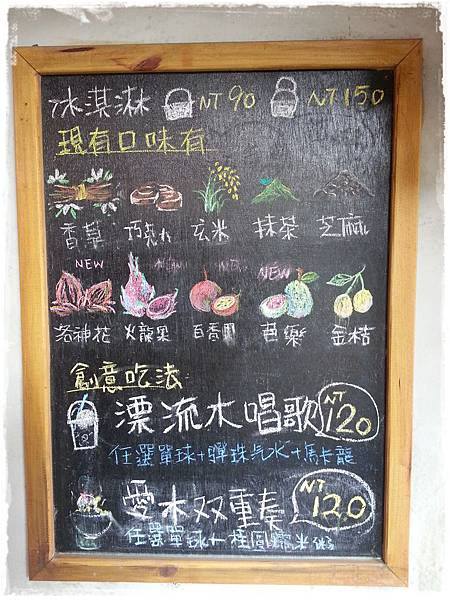 冰淇淋 NT 90 NT 150
現有口味有
香草 巧克力 玄米 抹茶 芝麻
NEW NEW NEW
洛神花 火龍果 百香果 芭樂 金桔
創意吃法
漂流木唱歌 NT 120
任選單球+彈珠汽水+馬卡龍
愛木双重奏 NT 120
任選單球+桂圓糯米粥